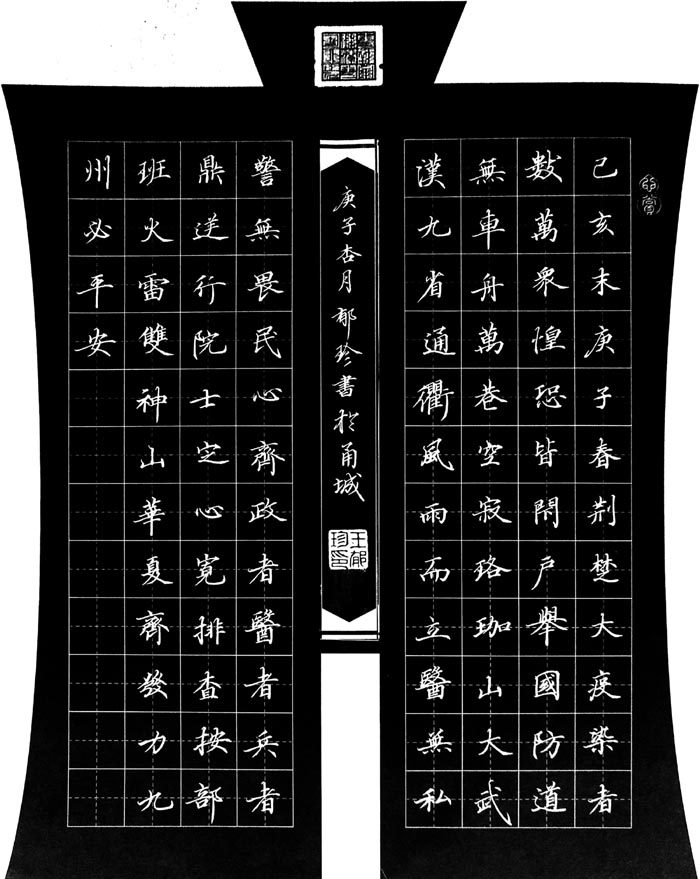 己亥末庚子春荆楚大疫染者
數萬衆惶恐皆閉户舉國防道
無車舟萬巷空寂珞珈山大武
漢九省通衢風雨而立醫無私
警無畏民心齊政者醫者兵者
鼎逆行院士定心寬排查按部
班火雷雙神山華夏齊發力九
州必平安
庚子杏月郁珍書於甬城
王郁珍印